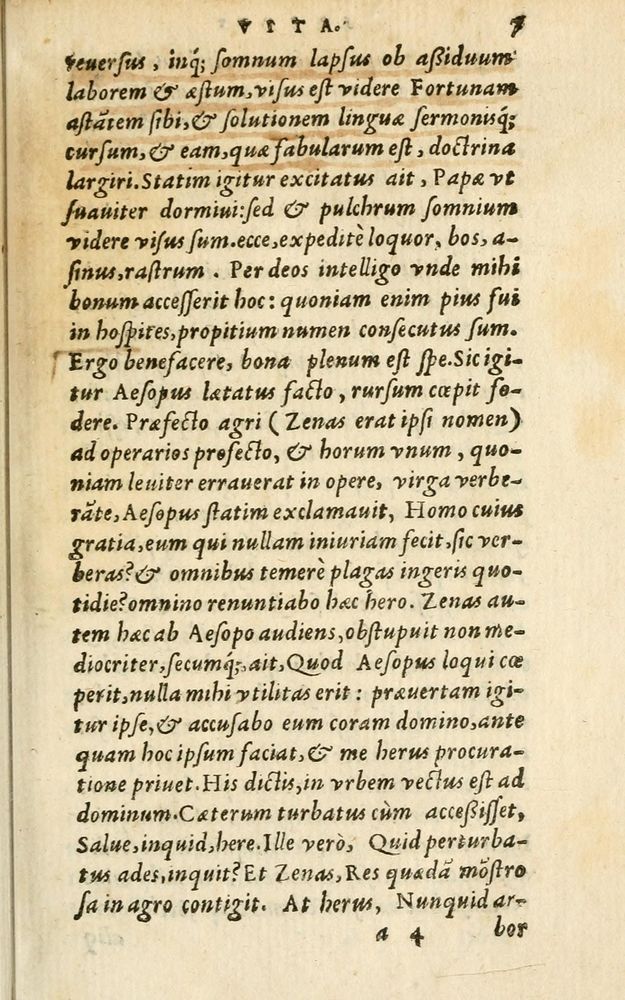 VITA. 7
reuersus, inq; somnum lapsus ob aßiduum
laborem & æstum, visus est videre Fortunam
astātem sibi, & solutionem linguæ sermonisq;
cursum, & eam, quæ fabularum est, doctrina
largiri. Statim igitur excitatus ait, Papæ vt
suauiter dormiui: sed & pulchrum somnium
videre visus sum. ecce, expeditè loquor, bos, a-
sinus, rastrum. Per deos intelligo vnde mihi
bonum accesserit hoc: quoniam enim pius fui
in hospites, propitium numen consecutus sum.
Ergo benefacere, bona plenum est spe. Sic igi-
tur Aesopus lætatus facto, rursum cœpit fo-
dere. Præfecto agri (Zenas erat ipsi nomen)
ad operarios profecto, & horum vnum, quo-
niam leuiter errauerat in opere, virga verbe-
rāte, Aesopus statim exclamauit, Homo cuius
gratia, eum qui nullam iniuriam fecit, sic ver-
beras? & omnibus temerè plagas ingeris quo-
tidie? omnino renuntiabo hæc hero. Zenas au-
tem hæc ab Aesopo audiens, obstupuit non me-
diocriter, secumq; ait, Quod Aesopus loqui cœ
perit, nulla mihi vtilitas erit: præuertam igi-
tur ipse, & accusabo eum coram domino, ante
quam hoc ipsum faciat, & me herus procura-
tione priuet. His dictis, in vrbem vectus est ad
dominum. Cæterum turbatus cùm accessißet,
Salue, inquid, here. Ille verò, Quid perturba-
tus ades, inquit? Et Zenas, Res quædā mōstro
sa in agro contigit. At herus, Nunquid ar-
a 4 bor